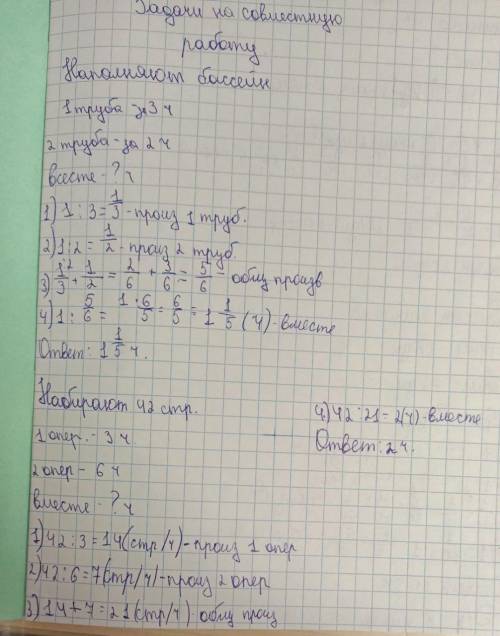 Задачи на совместную
работу
Наполняют бассейн
1 труба - за 3 ч
2 труба - за 2 ч
вместе - ? ч
1) 1 : 3 = 1/3 - произ 1 труб.
2) 1 : 2 = 1/2 - произ 2 труб.
3) 1/3 + 1/2 = 2/6 + 3/6 = 5/6 - общ произв
4) 1 : 5/6 = 1 · 6/5 = 6/5 = 1 1/5 (ч) - вместе
Ответ: 1 1/5 ч.
Набирают 42 стр.
1 опер. - 3 ч
2 опер - 6 ч
вместе - ? ч
1) 42 : 3 = 14 (стр/ч) - произ 1 опер
2) 42 : 6 = 7 (стр/ч) - произ 2 опер
3) 14 + 7 = 21 (стр/ч) - общ произ
4) 42 : 21 = 2 (ч) - вместе
Ответ: 2 ч.